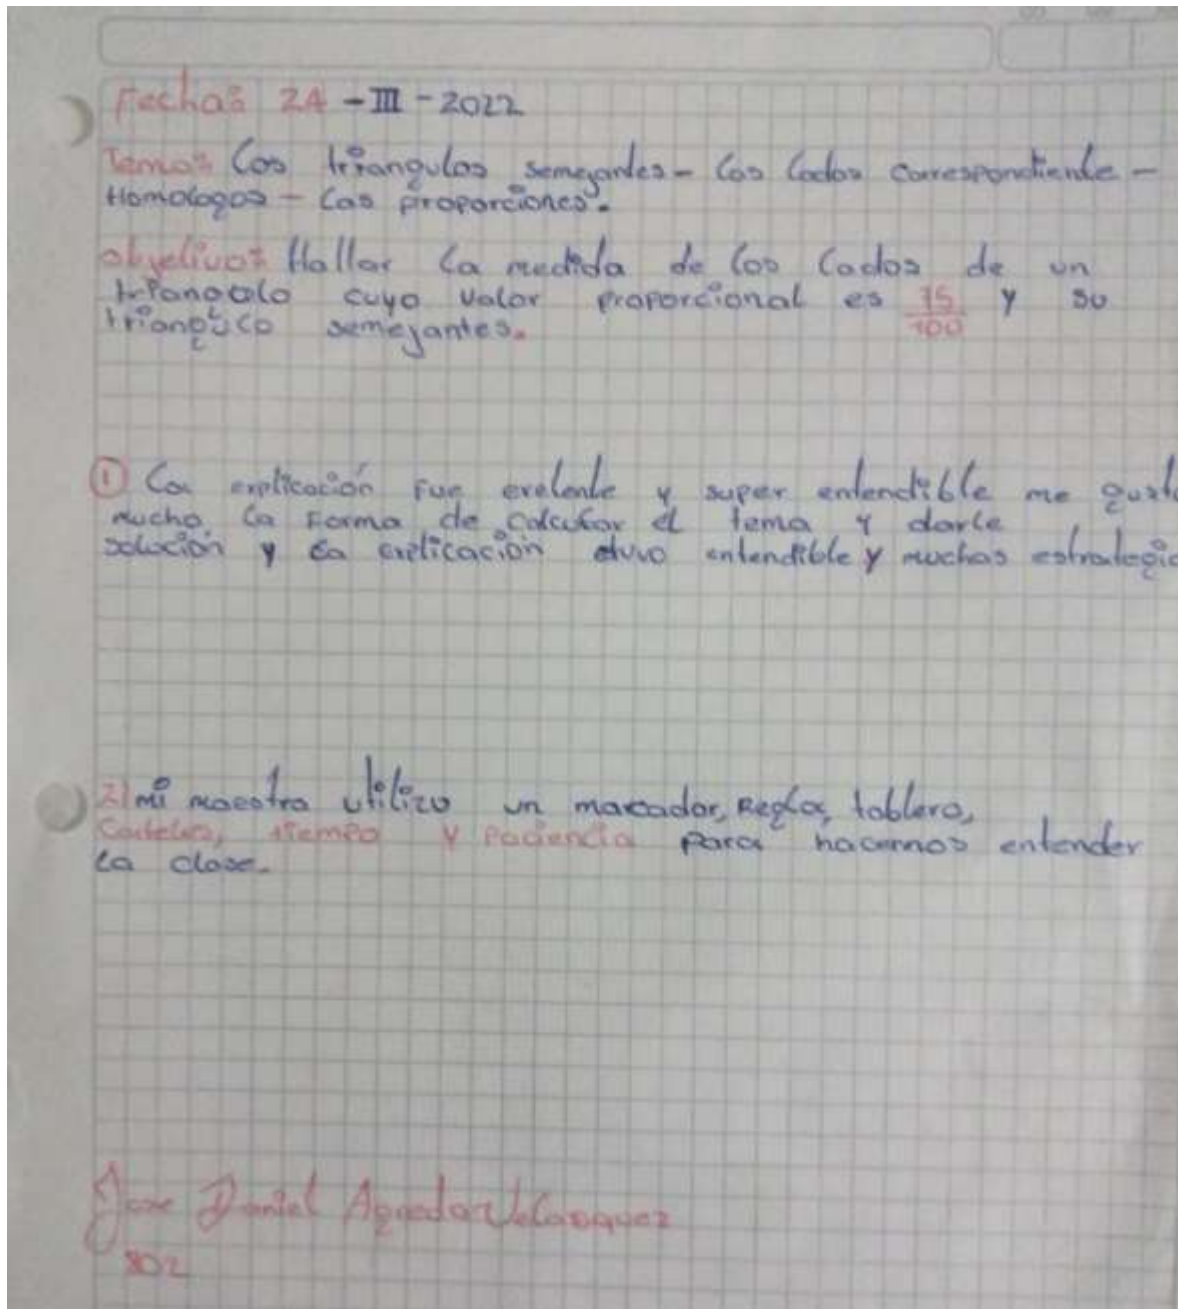 Fecha: 24 - III - 2022
Tema: Los triangulos semejantes - Los Lados Correspondiente -
Homologos - Las proporciones.
objetivo: Hallar La medida de los Lados de un
triangulo cuyo valor proporcional es 75/100 y su
triangulo semejantes.
① La explicación fue exelente y super entendible me gusto
mucho La Forma de calcular el tema y darle
solución y La explicación estuvo entendible y muchas estrategia
2) mi maestra utilizo un marcador, Regla, tablero,
Carteles, tiempo y Paciencia Para hacernos entender
La clase.
Jose Daniel Agredo Velasquez
802